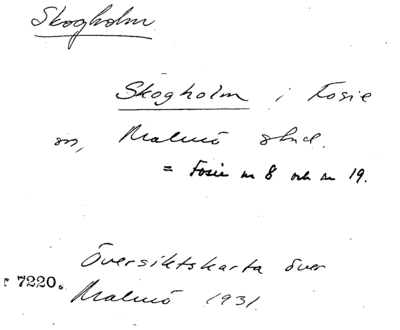 Skogholm
Skogholm i Fosie
sn, Malmö stad.
= Fosie nr 8 och nr 19.
Översiktskarta över
r 7220. Malmö 1931.